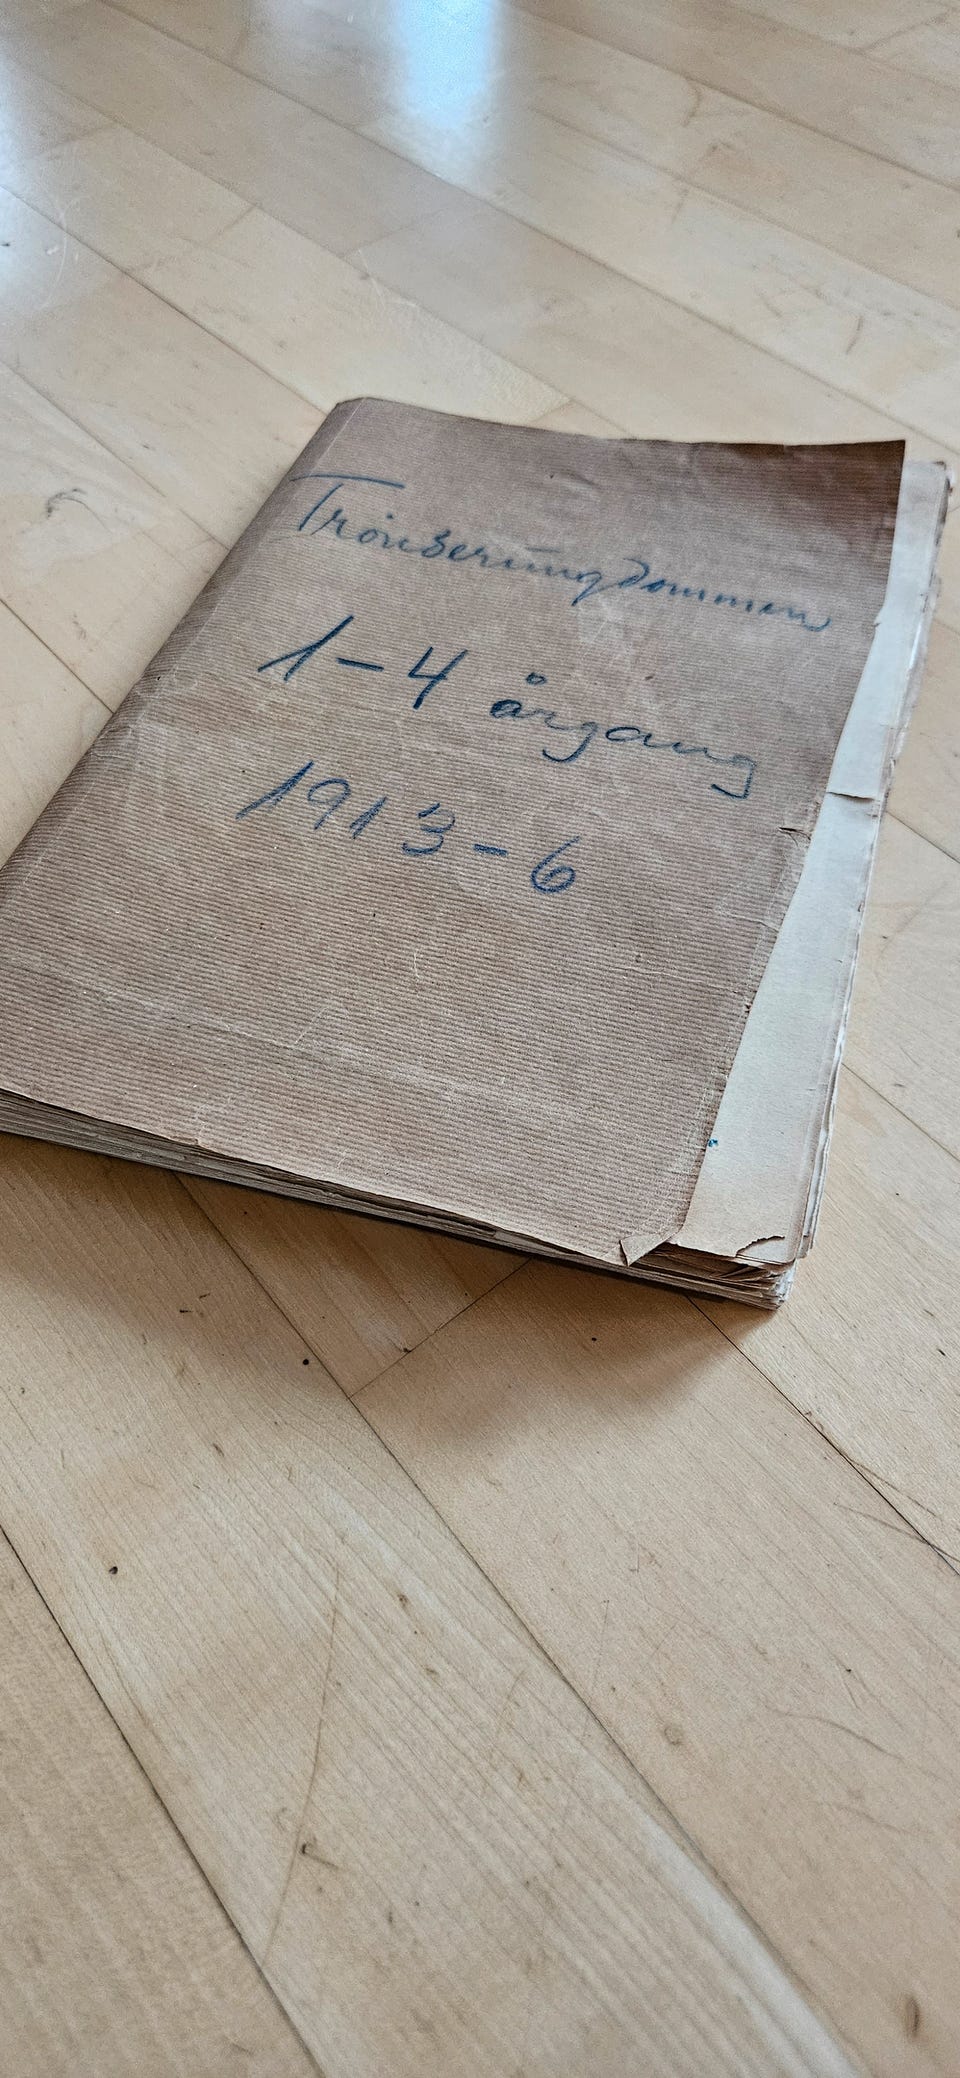 Trønderungdommen
1-4 årgang
1913-6